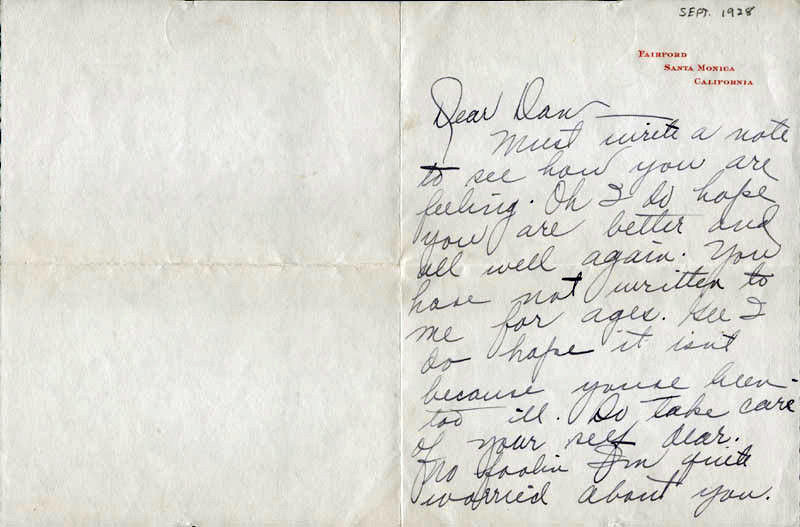 SEPT. 1928
FAIRFORD
SANTA MONICA
CALIFORNIA
Dear Dan
Must write a note
to see how you are
feeling. Oh I do hope
you are better and
all well again. You
have not written to
me for ages. Gee I
do hope it isn't
because youve been
too ill. Do take care
of your self dear.
No foolin I'm quite
worried about you.